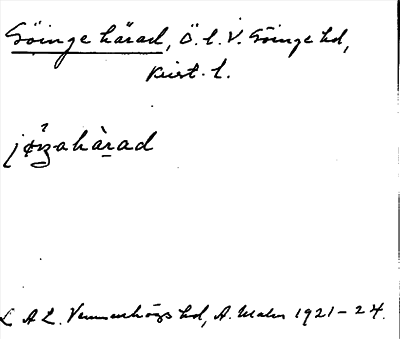 Göinge härad, Ö. o. V. Göinge hd,
Krist. l.
jø̀ŋahàrad
L A L. Vemmenhögs hd, A. Malm 1921-24.